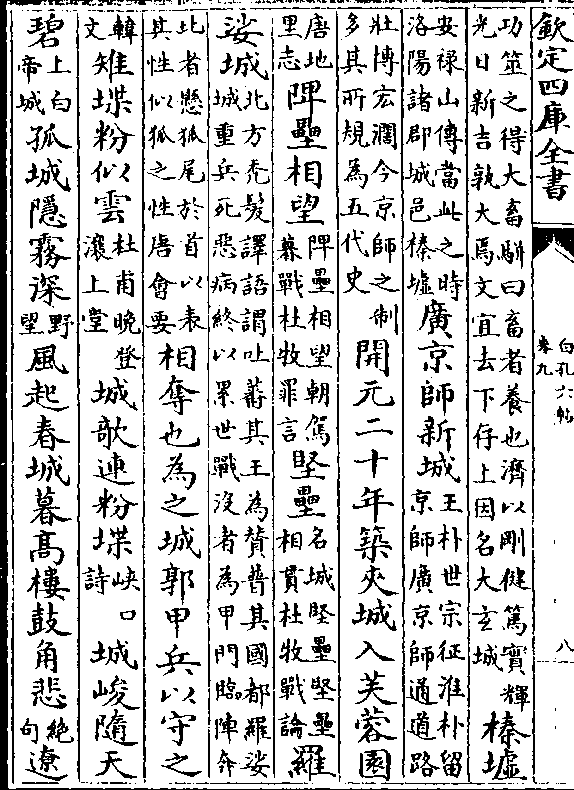 欽定四庫全書 白孔六帖 卷九 八
功筮之得大畜駢曰畜者養也濟以剛健篤實輝
光日新吉孰大焉文宜去下存上因名大玄城
榛墟
安禄山傳當此之時
洛陽諸郡城邑榛墟
廣京師新城
王朴世宗征淮朴留
京師廣京師通道路
壯博宏濶今京師之制
多其所規為五代史
開元二十年築夾城入芙蓉園
唐地
里志
陴壘相望
陴壘相望朝駕
暮戰杜牧罪言
堅壘
名城堅壘堅壘
相貫杜牧戰論
羅
娑城
北方禿髮譯語謂吐蕃其王為賛普其國都羅娑
城重兵死惡病終以累世戰沒者為甲門臨陣奔
北者懸狐尾於首以表
其性似狐之性唐會要
相奪也為之城郭甲兵以守之
韓
文
雉堞粉似雲
杜甫晚登
瀼上堂
城歌連粉堞
峽口
詩
城峻隨天
碧
上白
帝城
孤城隱霧深
野
望
風起春城暮髙樓鼓角悲
絶
句
遼